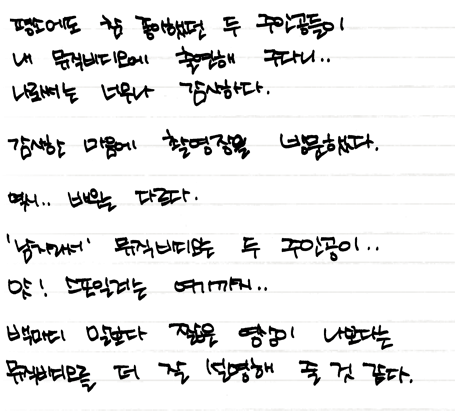 평소에도 참 좋아했던 두 주인공들이
내 뮤직비디오에 출연해 주다니..
나로써는 너무나 감사하다.
감사한 마음에 촬영장을 방문했다.
역시.. 배우는 다르다.
'남자라서' 뮤직비디오는 두 주인공이..
앗! 스포일러는 여기까지..
백마디 말보다 짧은 영상이 나보다는
뮤직비디오를 더 잘 설명해 줄 것 같다.